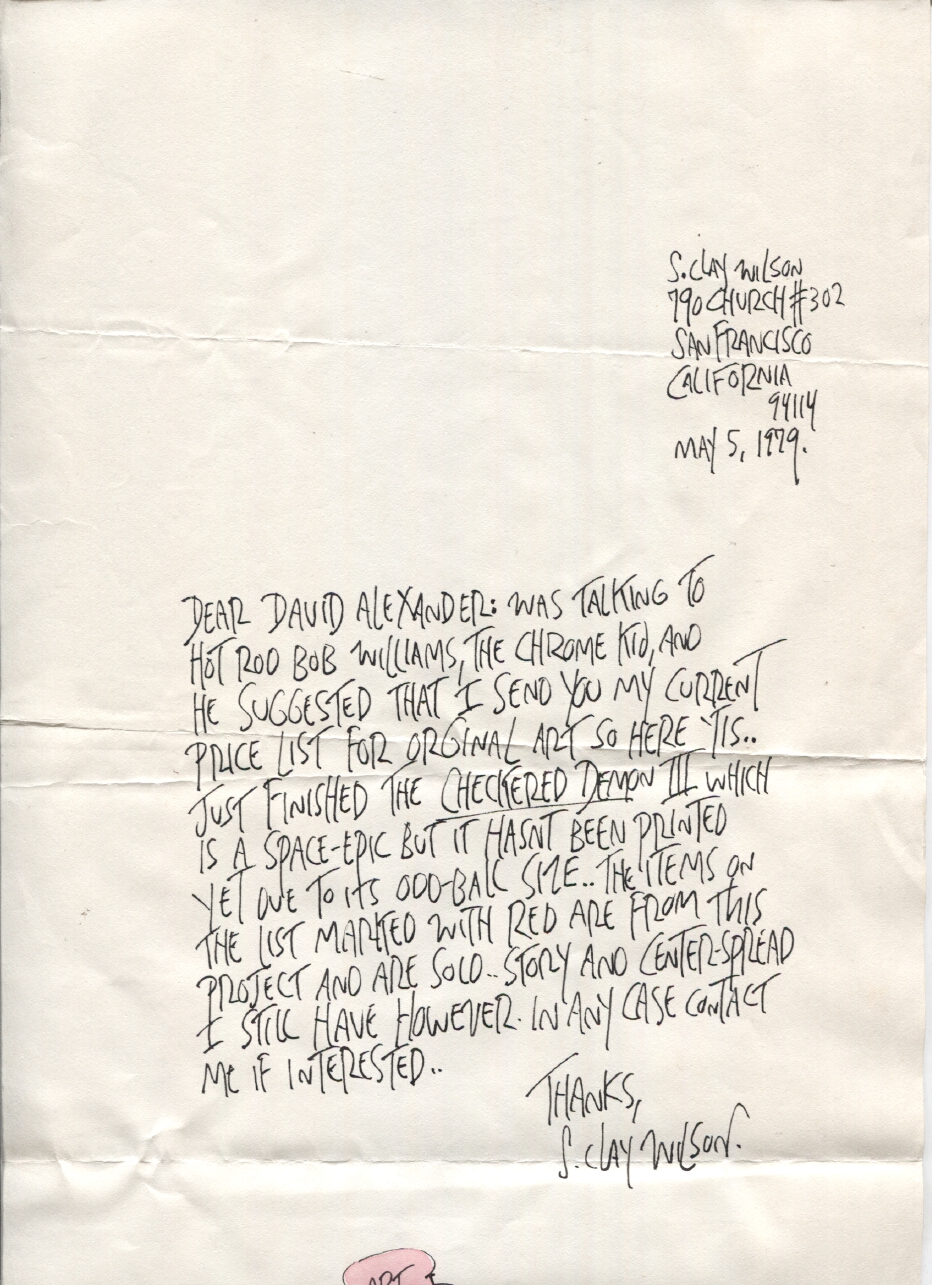 S. CLAY WILSON
790 CHURCH #302
SAN FRANCISCO
CALIFORNIA
94114
MAY 5, 1979.
DEAR DAVID ALEXANDER: WAS TALKING TO
HOT ROD BOB WILLIAMS, THE CHROME KID, AND
HE SUGGESTED THAT I SEND YOU MY CURRENT
PRICE LIST FOR ORGINAL ART SO HERE 'TIS..
JUST FINISHED THE CHECKERED DEMON III WHICH
IS A SPACE-EPIC BUT IT HASNT BEEN PRINTED
YET DUE TO ITS ODD-BALL SIZE.. THE ITEMS ON
THE LIST MARKED WITH RED ARE FROM THIS
PROJECT AND ARE SOLD.. STORY AND CENTER-SPREAD
I STILL HAVE HOWEVER. IN ANY CASE CONTACT
ME IF INTERESTED..
THANKS,
S. CLAY WILSON.
ART